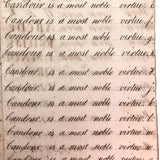 Candour is a most noble virtue.
Candour is a most noble virtue.
Candour is a most noble virtue.
Candour is a most noble virtue.
Candour is a most noble virtue.
Candour is a most noble virtue.
Candour is a most noble virtue.
Candour is a most noble virtue.
Candour is a most noble virtue.
Candour is a most noble virtue.